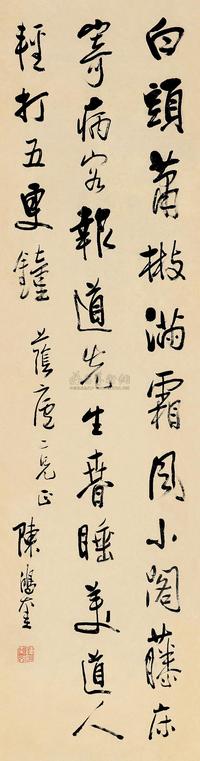 白頭蕭散滿霜風小閣藤床
寄病容報道先生春睡美道人
輕打五更鐘 蔭廬二兄正 陳鴻奎